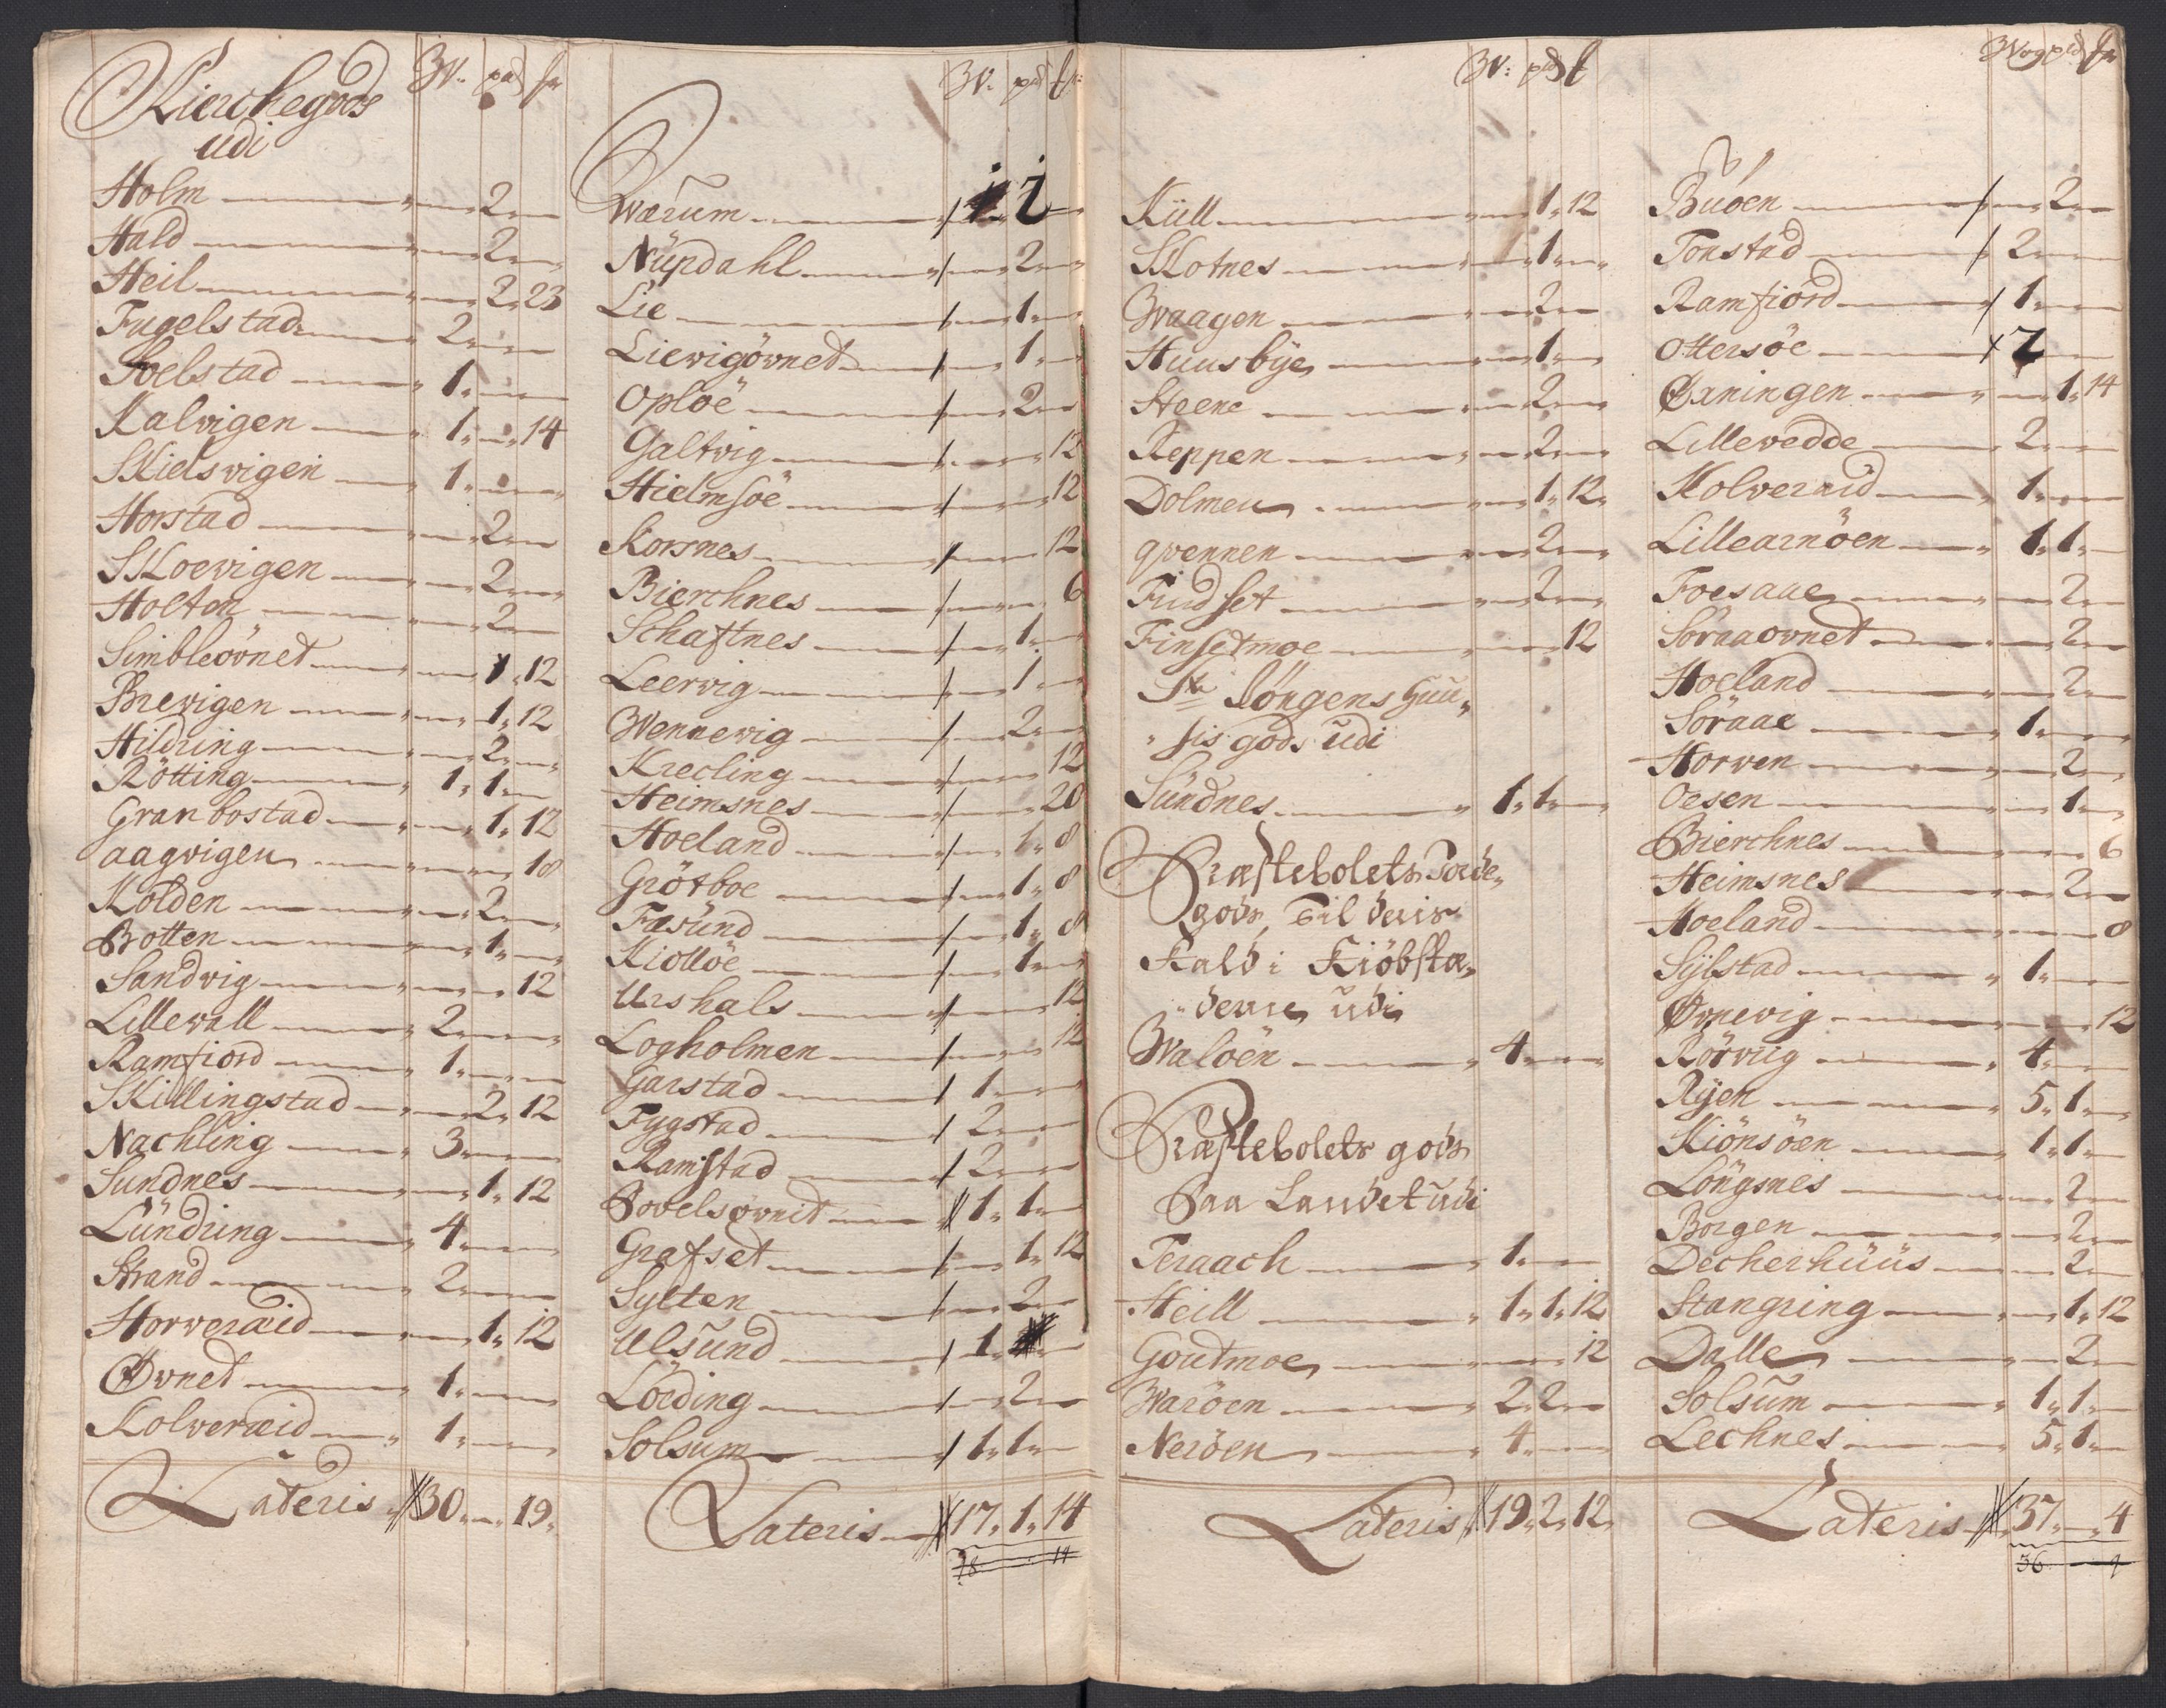 W: pd fr
Kierchegods
udi
Holm 2
Hald 2
Heil 2 23
Fugelstad 2
Soelstad 1
Kalvigen 1 14
Skielsvigen 1
Horstad 2
Skoevigen 2
Holten 2
Simbleövnet 1 12
Brevigen 1 12
Hildring 2
Rötting 1 1
Granbostad 1 12
aagvigen 18
Kolden 2
Botten 1
Sandvig 12
Lillevall 2
Ramfiord 1
Skillingstad 2 12
Nachling 3
Sundnes 1 12
Lündring 4
Strand 2
Horveræid 1 12
Øvnet 1
Kolveræid 1
Lateris 30 19
W: pd
Wærum 1 1
Nüpdahl 2
Lie 1
Lievigövnet 1
Oploë 2
Galtvig 12
Hielmsöe 12
Korsnes 12
Bierchnes 6
Schaftnes 1
Leervig 1
Wennevig 2
Krecling 12
Heimsnes 20
Hoeland 1 8
Grötboe 1 8
Fæsünd 1 8
Kiollöe 1
Urshals 12
Logholmen 12
Garstad 1
Fygstad 2
Ramstad 2
Bovelsøvnit 1 1
Grafset 1 12
Sylten 2
Ulsund 1
Lörding 2
Solsum 1 1
Lateris 17 1 14
18 14
W: pd
Küll 1 12
Klotnes 1
Waagen 2
Huusbye 1
Steene 2
Reppen 2
Dolmen 1 12
qvennen 2
Findset 2
Finsetmoe 12
St Jöngens Huu
sis gods udi
Sündnes 1 1
Præstebolets Jorde
gods, Til deris
Kald i Kiöbstæ
derne udi
Waløen 4
Præstebolets gods
Paa Landet udi
Teraach 1
Heill 1 1 12
Goutmoe 12
Waröen 2 2
Neröen 4
Lateris 19 2 12
Wog pd fr
Buöen 2
Tonstad 2
Ramfiord 1
Ottersöe 2
Øxningen 1 14
Lillevedde 2
Kolveræid 1
Lillearnöen 1 1
Foesaae 2
Soraaovnet 2
Hoeland 2
Söraae 1
Horven 2
Oesen 1
Bierchnes 6
Heimsnes 2
Hoeland 8
Sylstad 1
Øvnevig 12
Rörvüg 4
Ryen 5 1
Kiönsöen 1 1
Löngsnes 2
Borgen 2
Decherhüüs 2
Stangring 1 12
Dalle 2
Solsum 1 1
Lechnes 5 1
Lateris 37 4
36